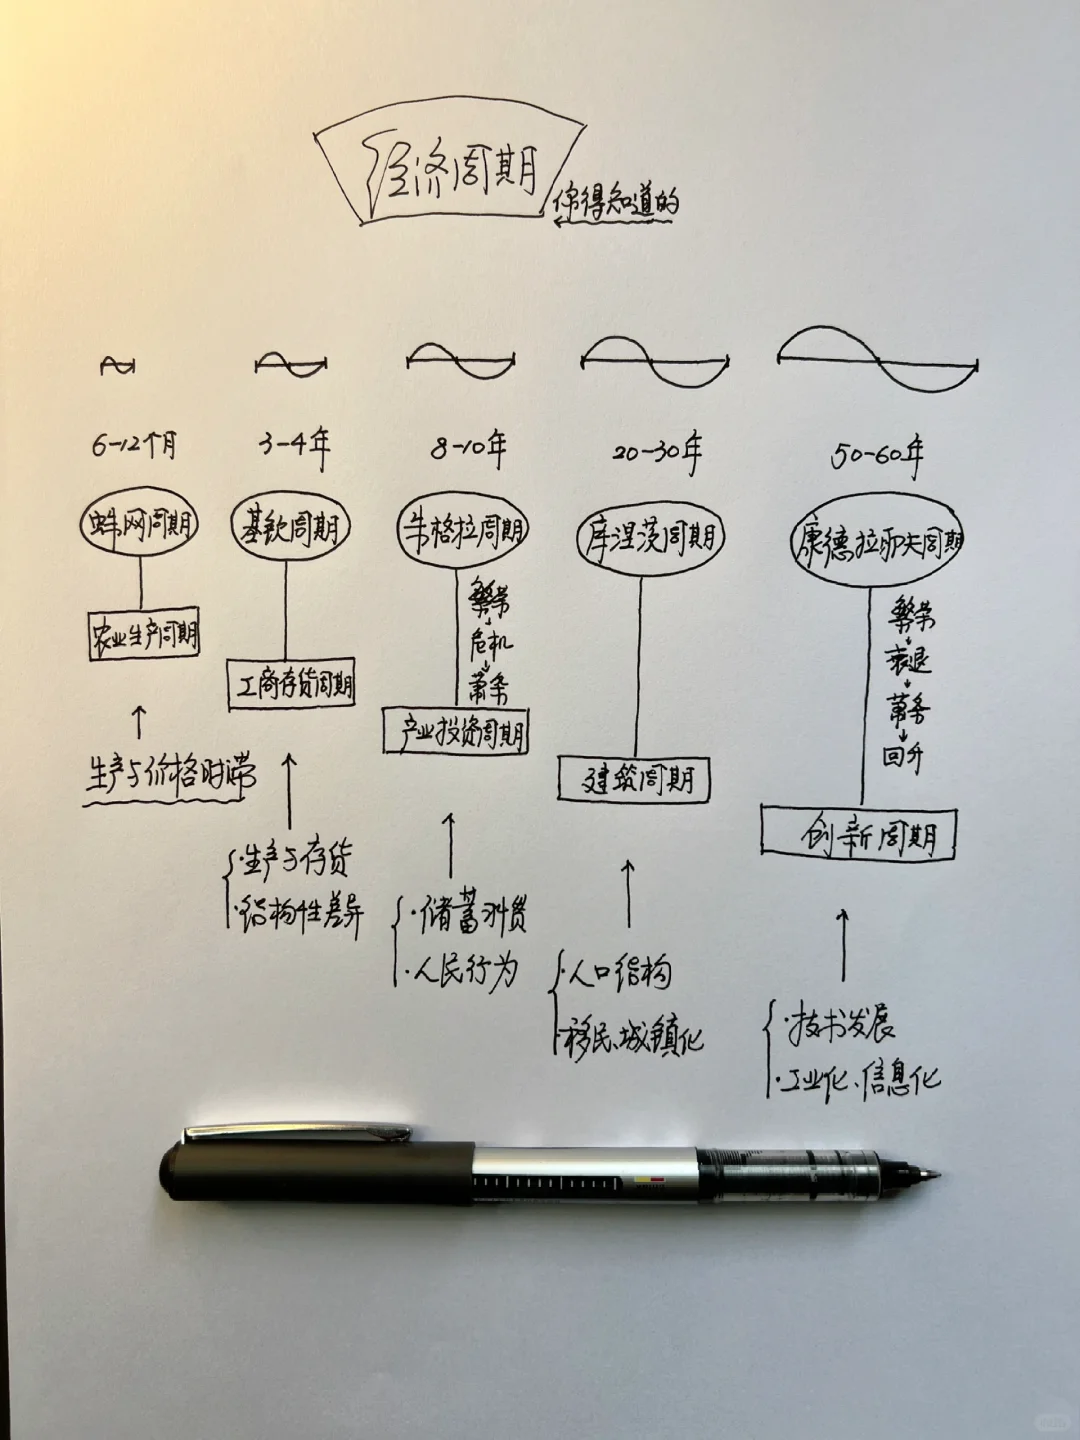 经济周期
你得知道的
6-12个月
3-4年
8-10年
20-30年
50-60年
蛛网周期
基钦周期
朱格拉周期
库涅茨周期
康德拉耶夫周期
农业生产周期
工商存货周期
繁荣
危机
萧条
产业投资周期
建筑周期
繁荣
衰退
萧条
回升
创新周期
生产与价格时滞
·生产与存货
·结构性差异
·储蓄习惯
·人民行为
·人口结构
·移民、城镇化
·技术发展
·工业化、信息化